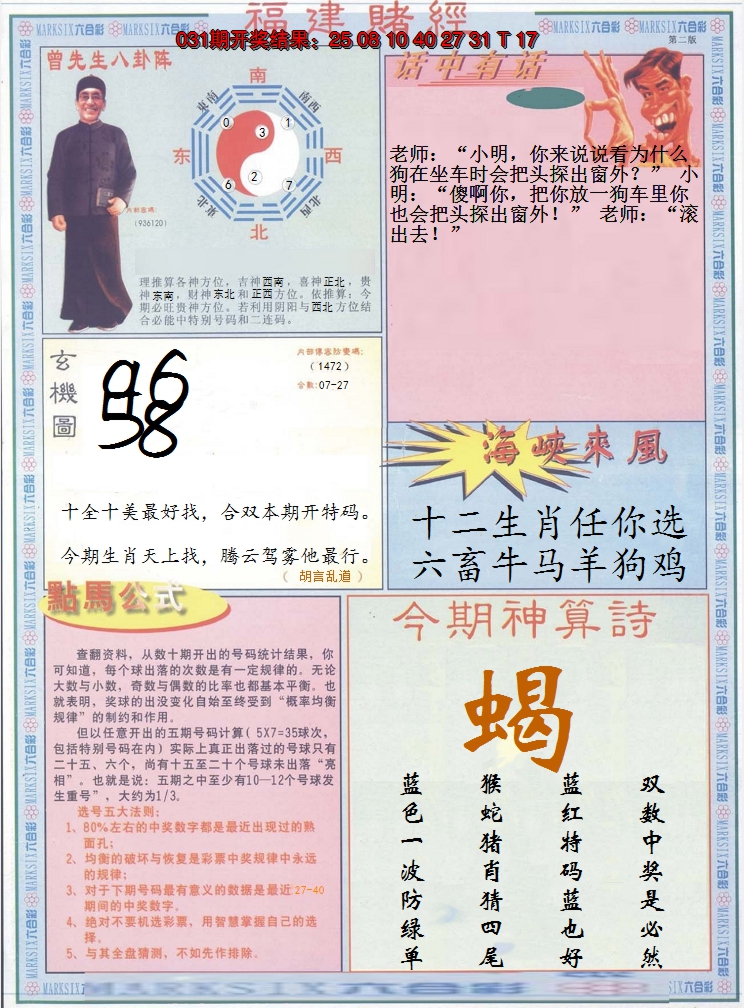 福建賭經
031期开奖结果：25 08 10 40 27 31 T 17
第二版
MARKSIX六合彩
曾先生八卦阵
南
东南
南西
0
3
1
东
西
6
2
7
東北
北西
北
内部密碼:
(936120)
理推算各神方位，吉神西南，喜神正北，贵
神东南，财神东北和正西方位。依推算：今
期必旺贵神方位。若利用阴阳与西北方位结
合必能中特别号码和二连码。
话中有话
老师：“小明，你来说说看为什么
狗在坐车时会把头探出窗外？” 小
明：“傻啊你，把你放一狗车里你
也会把头探出窗外！” 老师：“滚
出去！”
玄機圖
（1472）
合数:07-27
十全十美最好找，合双本期开特码。
今期生肖天上找，腾云驾雾他最行。
（ 胡言乱道 ）
海峽來風
十二生肖任你选
六畜牛马羊狗鸡
點馬公式
查翻资料，从数十期开出的号码统计结果，你
可知道，每个球出落的次数是有一定规律的。无论
大数与小数，奇数与偶数的比率也都基本平衡。也
就表明，奖球的出没变化自始至终受到“概率均衡
规律”的制约和作用。
但以任意开出的五期号码计算( 5X7=35球次，
包括特别号码在内) 实际上真正出落过的号球只有
二十五、六个，尚有十五至二十个号球未出落“亮
相”。也就是说：五期之中至少有10—12个号球发
生重号”，大约为1/3。
选号五大法则：
1、80%左右的中奖数字都是最近出现过的熟
面孔；
2、均衡的破坏与恢复是彩票中奖规律中永远
的规律；
3、对于下期号码最有意义的数据是最近27-40
期间的中奖数字。
4、绝对不要机选彩票，用智慧掌握自己的选
择。
5、与其全盘猜测，不如先作排除。
今期神算詩
蝎
双数中奖是必然
蓝红特码蓝也好
猴蛇猪肖猜四尾
蓝色一波防绿单